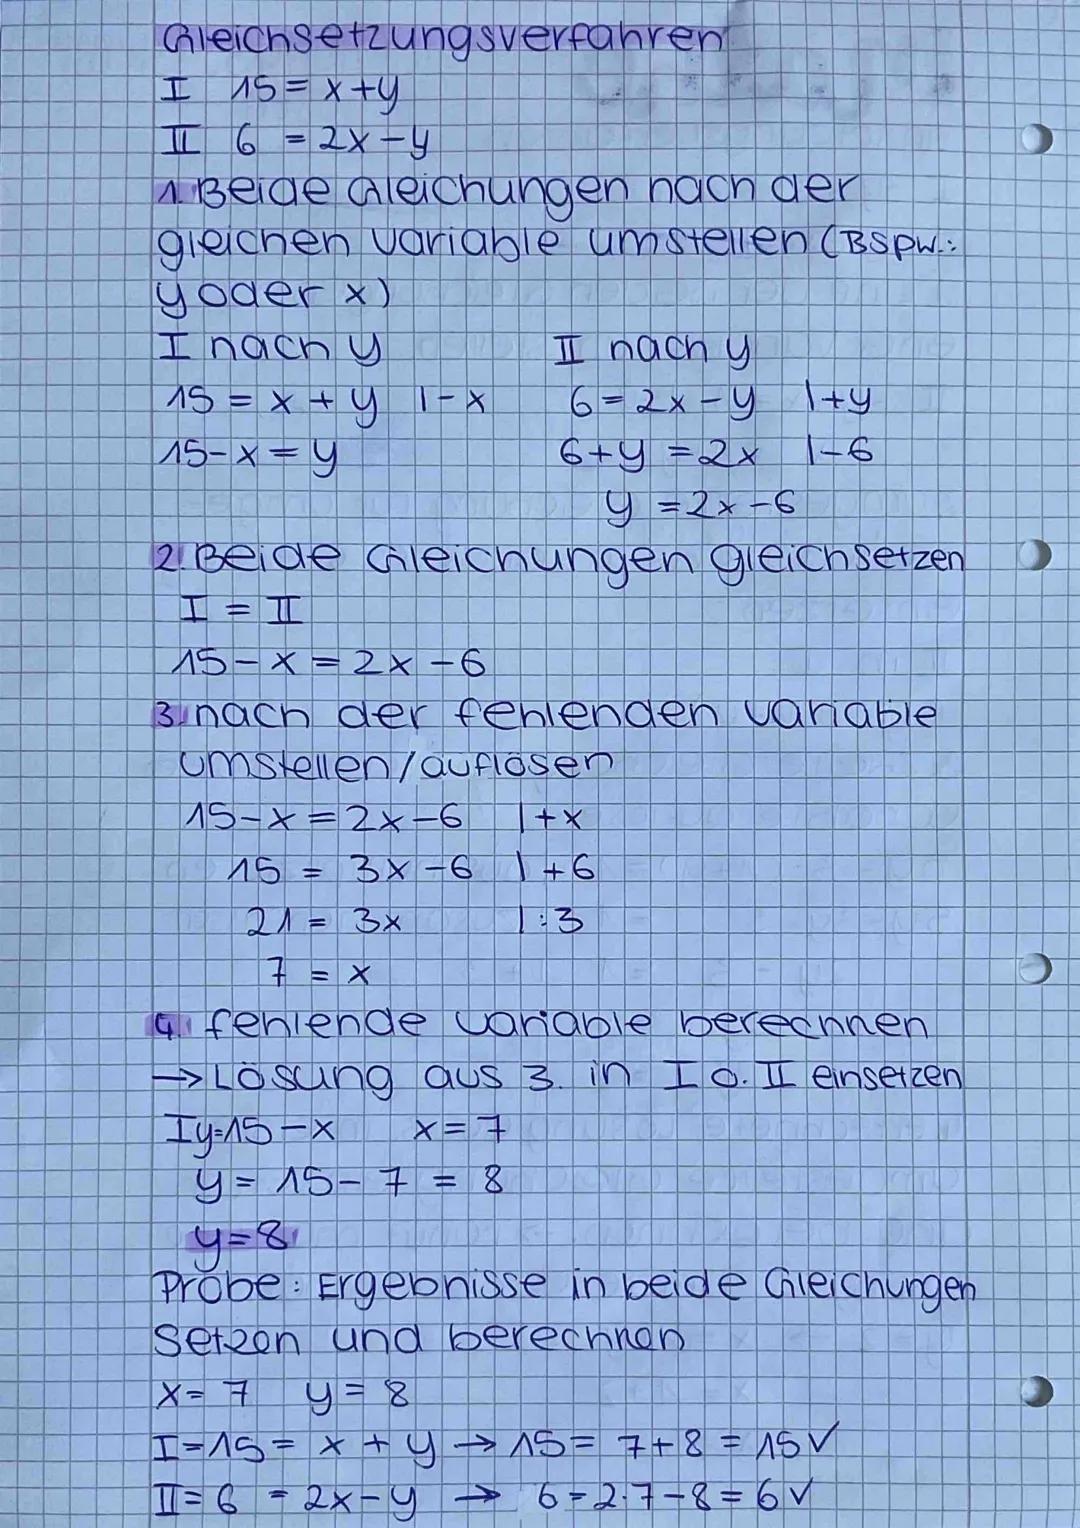 Gleichsetzungsverfahren
I 15 = x + y
II 6 = 2x - y
1. Beide Gleichungen nach der
gleichen Variable umstellen (Bspw.:
y oder x)
I nach y II nach y
15 = x + y |-x 6 = 2x - y |+y
15 - x = y 6 + y = 2x |-6
y = 2x - 6
2. Beide Gleichungen gleichsetzen
I = II
15 - x = 2x - 6
3. nach der fehlenden Variable
umstellen/auflösen
15 - x = 2x - 6 |+x
15 = 3x - 6 |+6
21 = 3x |:3
7 = x
4. fehlende Variable berechnen
→ Lösung aus 3. in I o. II einsetzen
I y = 15 - x x = 7
y = 15 - 7 = 8
y = 8
Probe: Ergebnisse in beide Gleichungen
setzen und berechnen
x = 7 y = 8
I = 15 = x + y → 15 = 7 + 8 = 15 ✓
II = 6 = 2x - y → 6 = 2·7 - 8 = 6 ✓